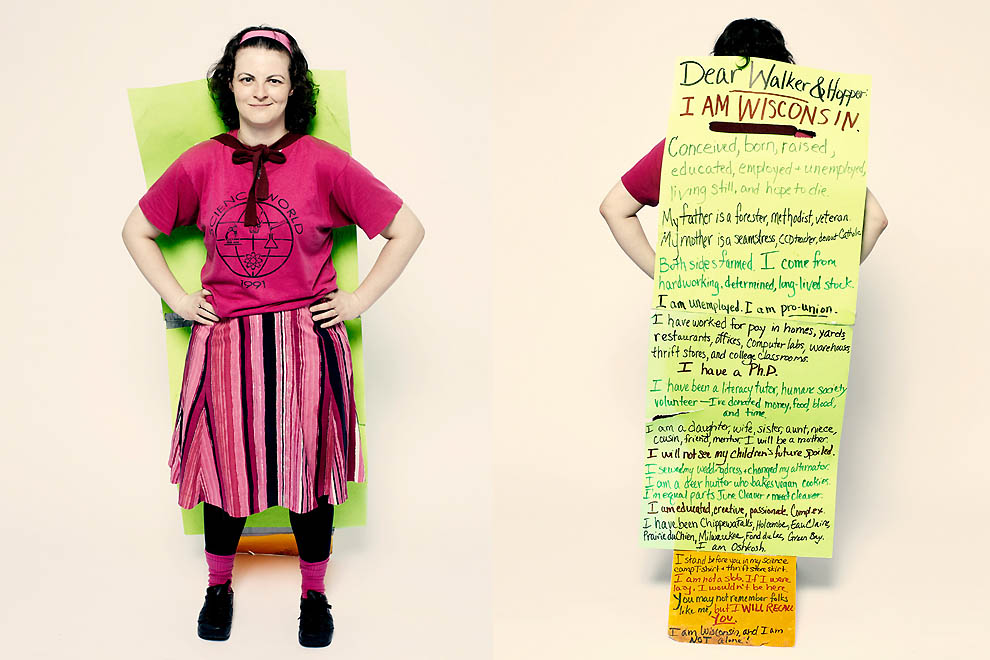 SCIENCE WORLD
1991
Dear Walker & Hopper:
I AM WISCONSIN.
Conceived, born, raised,
educated, employed + unemployed,
living still, and hope to die.
My father is a forester, methodist, veteran.
My mother is a seamstress, CCD teacher, devout Catholic.
Both sides farmed. I come from
hardworking, determined, long-lived stock.
I am unemployed. I am pro-union.
I have worked for pay in homes, yards,
restaurants, offices, computer labs, warehouses,
thrift stores, and college classrooms.
I have a Ph.D.
I have been a literacy tutor, humane society
volunteer — I've donated money, food, blood,
and time.
I am a daughter, wife, sister, aunt, niece,
cousin, friend, mentor. I will be a mother.
I will not see my children's future spoiled.
I sewed my wedding dress + changed my alternator.
I am a deer hunter who bakes vegan cookies.
I'm equal parts June Cleaver + meat cleaver.
I am educated, creative, passionate. Complex.
I have been Chippewa Falls, Holcombe, Eau Claire,
Prairie du Chien, Milwaukee, Fond du Lac, Green Bay.
I am Oshkosh.
I stand before you in my science
camp T-shirt + thrift store skirt.
I am not a slob. If I were
lazy, I wouldn't be here.
You may not remember folks
like me, but I WILL RECALL
YOU.
I am Wisconsin, and I am
NOT alone!